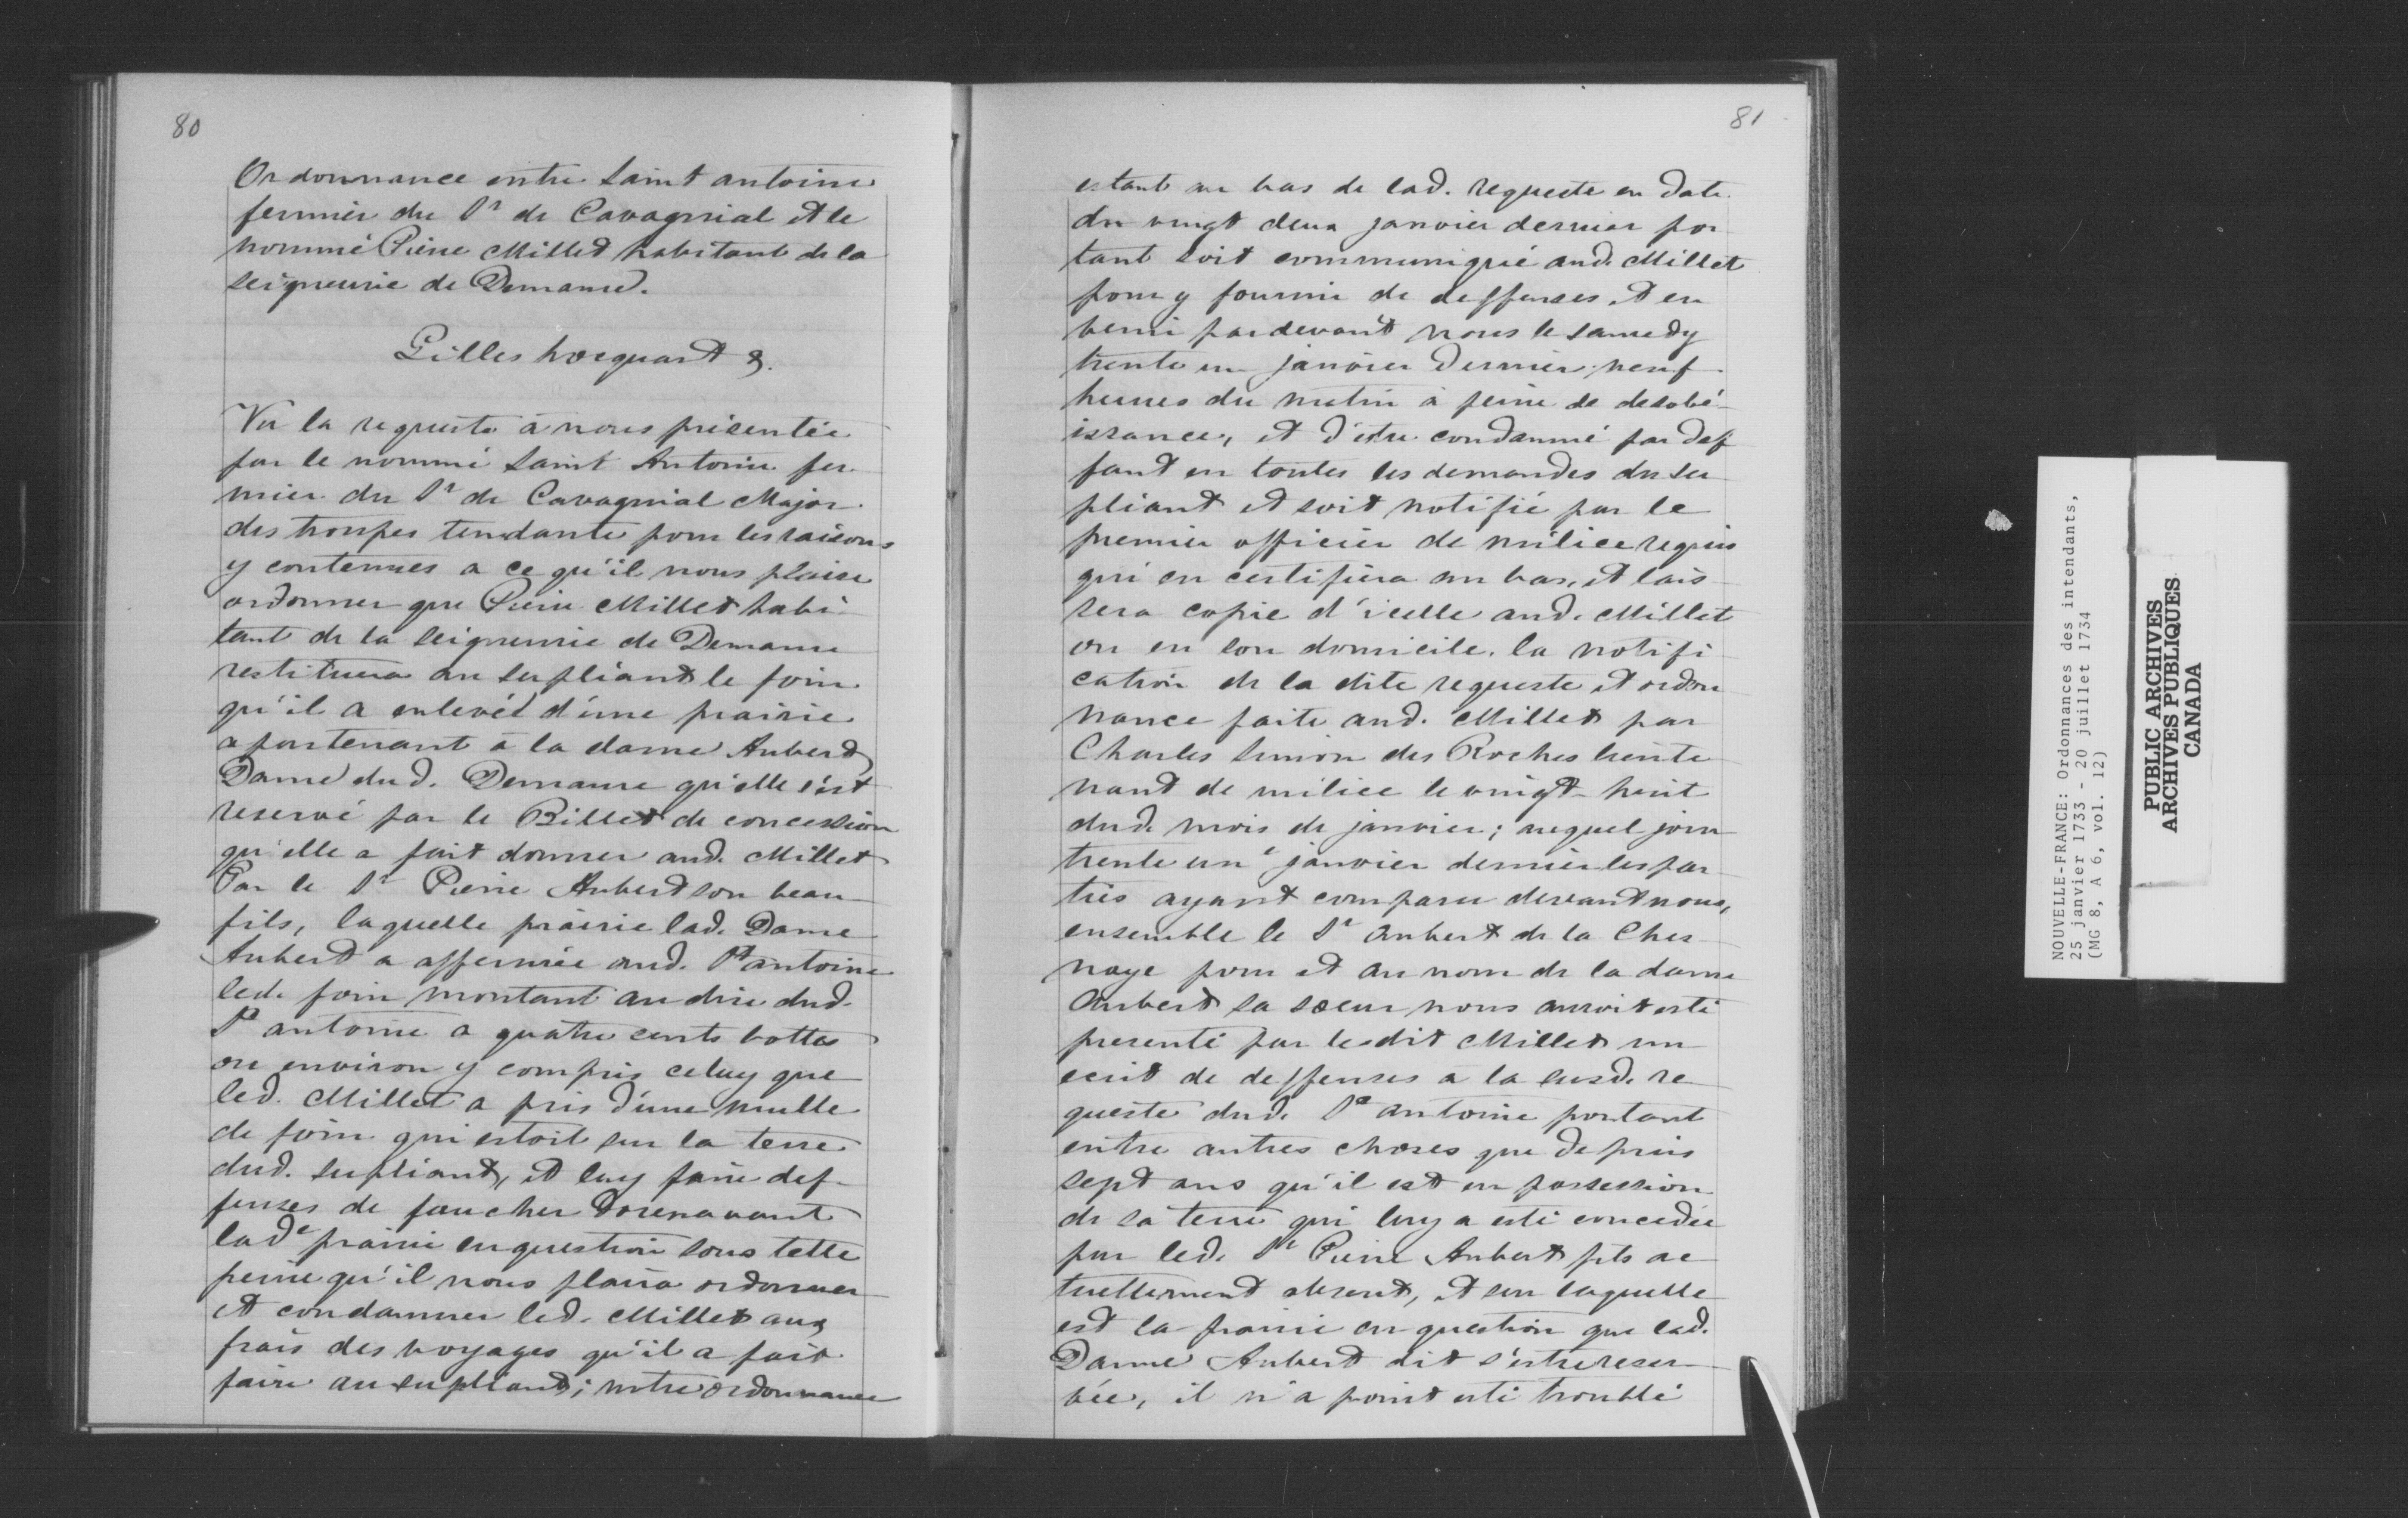 80
Ordonnance entre Saint antoine
fermier du Sr de Cavagnial et le
nommé Pierre Millet habitant de la
seigneurie de Demaure.
Gilles hocquart &.
Vu la requeste à nous présentée
par le nommé Saint Antoine fer
mier du Sr de Cavagnial Major
des troupes tendante pour les raisons
y contenues a ce qu'il nous plaise
ordonner que Pierre Millet habi
tant de la seigneurie de Demaure
restituera au supliant le foin
qu'il a enlevé d'une prairie
apartenant à la dame Aubert
Dame dud. Demaure qu'elle s'est
reservé par le Billet de concession
qu'elle a fait donner aud. Millet
Par le Sr Pierre Aubert son beau
fils, laquelle prairie lad. Dame
Aubert a affermée aud. St antoine
led. foin montant au dire dud.
St antoine a quatre cents bottes
ou environ y compris celuy que
led. Millet a pris d'une mulle
de foin qui estoit sur la terre
dud. supliant, et luy faire def-
fenses de faucher dorenavant
lade prairie en question sous telle
peine qu'il nous plaira ordonner
et condamner led. Millet aux
frais des voyages qu'il a fait
faire au supliant; notre ordonnance
81
estant au bas de lad. requeste en date
du vingt deux janvier dernier por
tant soit communiqué aud. Millet
pour y fournir de deffenses, et en
venir pardevant nous le samedy
trente un janvier dernier neuf
heures du matin à peine de desobé-
issance, et d'estre condamné par def
faut en toutes les demandes du su
pliant et soit notifié par le
premier officier de milice requis
qui en certifiera au bas, et lais
sera copie d'icelle aud. Millet
ou en son domicile. la notifi
cation de la dite requeste et ordon
nance faite aud. Millet par
Charles Simon des Roches lieute
nant de milice le vingt-huit
dud. mois de janvier; auquel jour
trente une janvier dernier les par
ties ayant comparu devant nous,
ensemble le Sr Aubert de la Ches
naye pour et au nom de la dame
Aubert sa soeur nous auroit esté
presenté par ledit Millet un
ecrit de deffenses a la susd. re
queste dud. St antoine portant
entre autres choses que depuis
sept ans qu'il est en possession
de sa terre qui luy a esté concedée
par led. Sr Pierre Aubert fils ac
tuellement absent, et sur laquelle
est la prairie en question que lad.
Dame Aubert dit s'estre reser
vée, il n'a point esté troublé
NOUVELLE-FRANCE: Ordonnances des intendants,
25 janvier 1733 - 20 juillet 1734
(MG 8, A 6, vol. 12)
PUBLIC ARCHIVES
ARCHIVES PUBLIQUES
CANADA